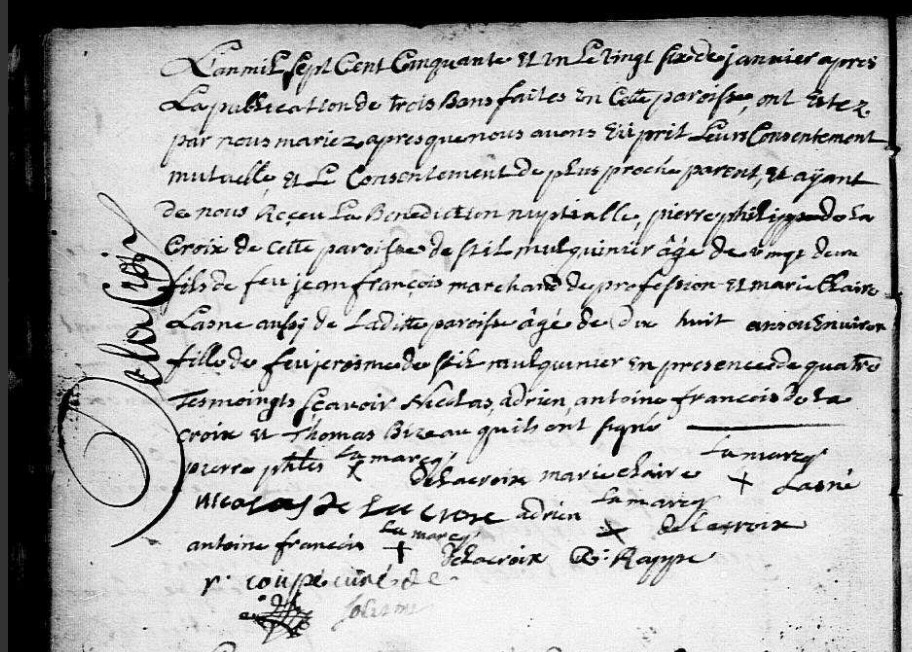 L'an mil sept Cent Cinquante et un Le vingt six de janvier apres
La publication de trois Bans faites en Cette paroisse, ont estez
par nous mariez apres que nous avons eü prit Leurs Consentement
mutuelle et Le Consentement de plus proche parent, et ayant
de nous Reçeu La Benediction nuptialle, pierre philippe de La
Croix de Cette paroisse de stil mulquinier âgé de vingt deux
fils de feu jean françois marchand de profession et marie Claire
Lasne aussi de Laditte paroisse âgé de Dix huit ans ou Environ
fille de feu jerosme de stil mulquinier en presence de quatre
Tesmoingts sçavoir Nicolas, adrien, antoine francois De La
croix et Thomas Bizeau qui ont signé
pierre philes La marcq + delacroix marie claire La marcq + Lasne
nicolas de La croix adrien La marcq + de la croix
antoine francois La marcq + delacroix
coupé curé de
solesme
Delacroix